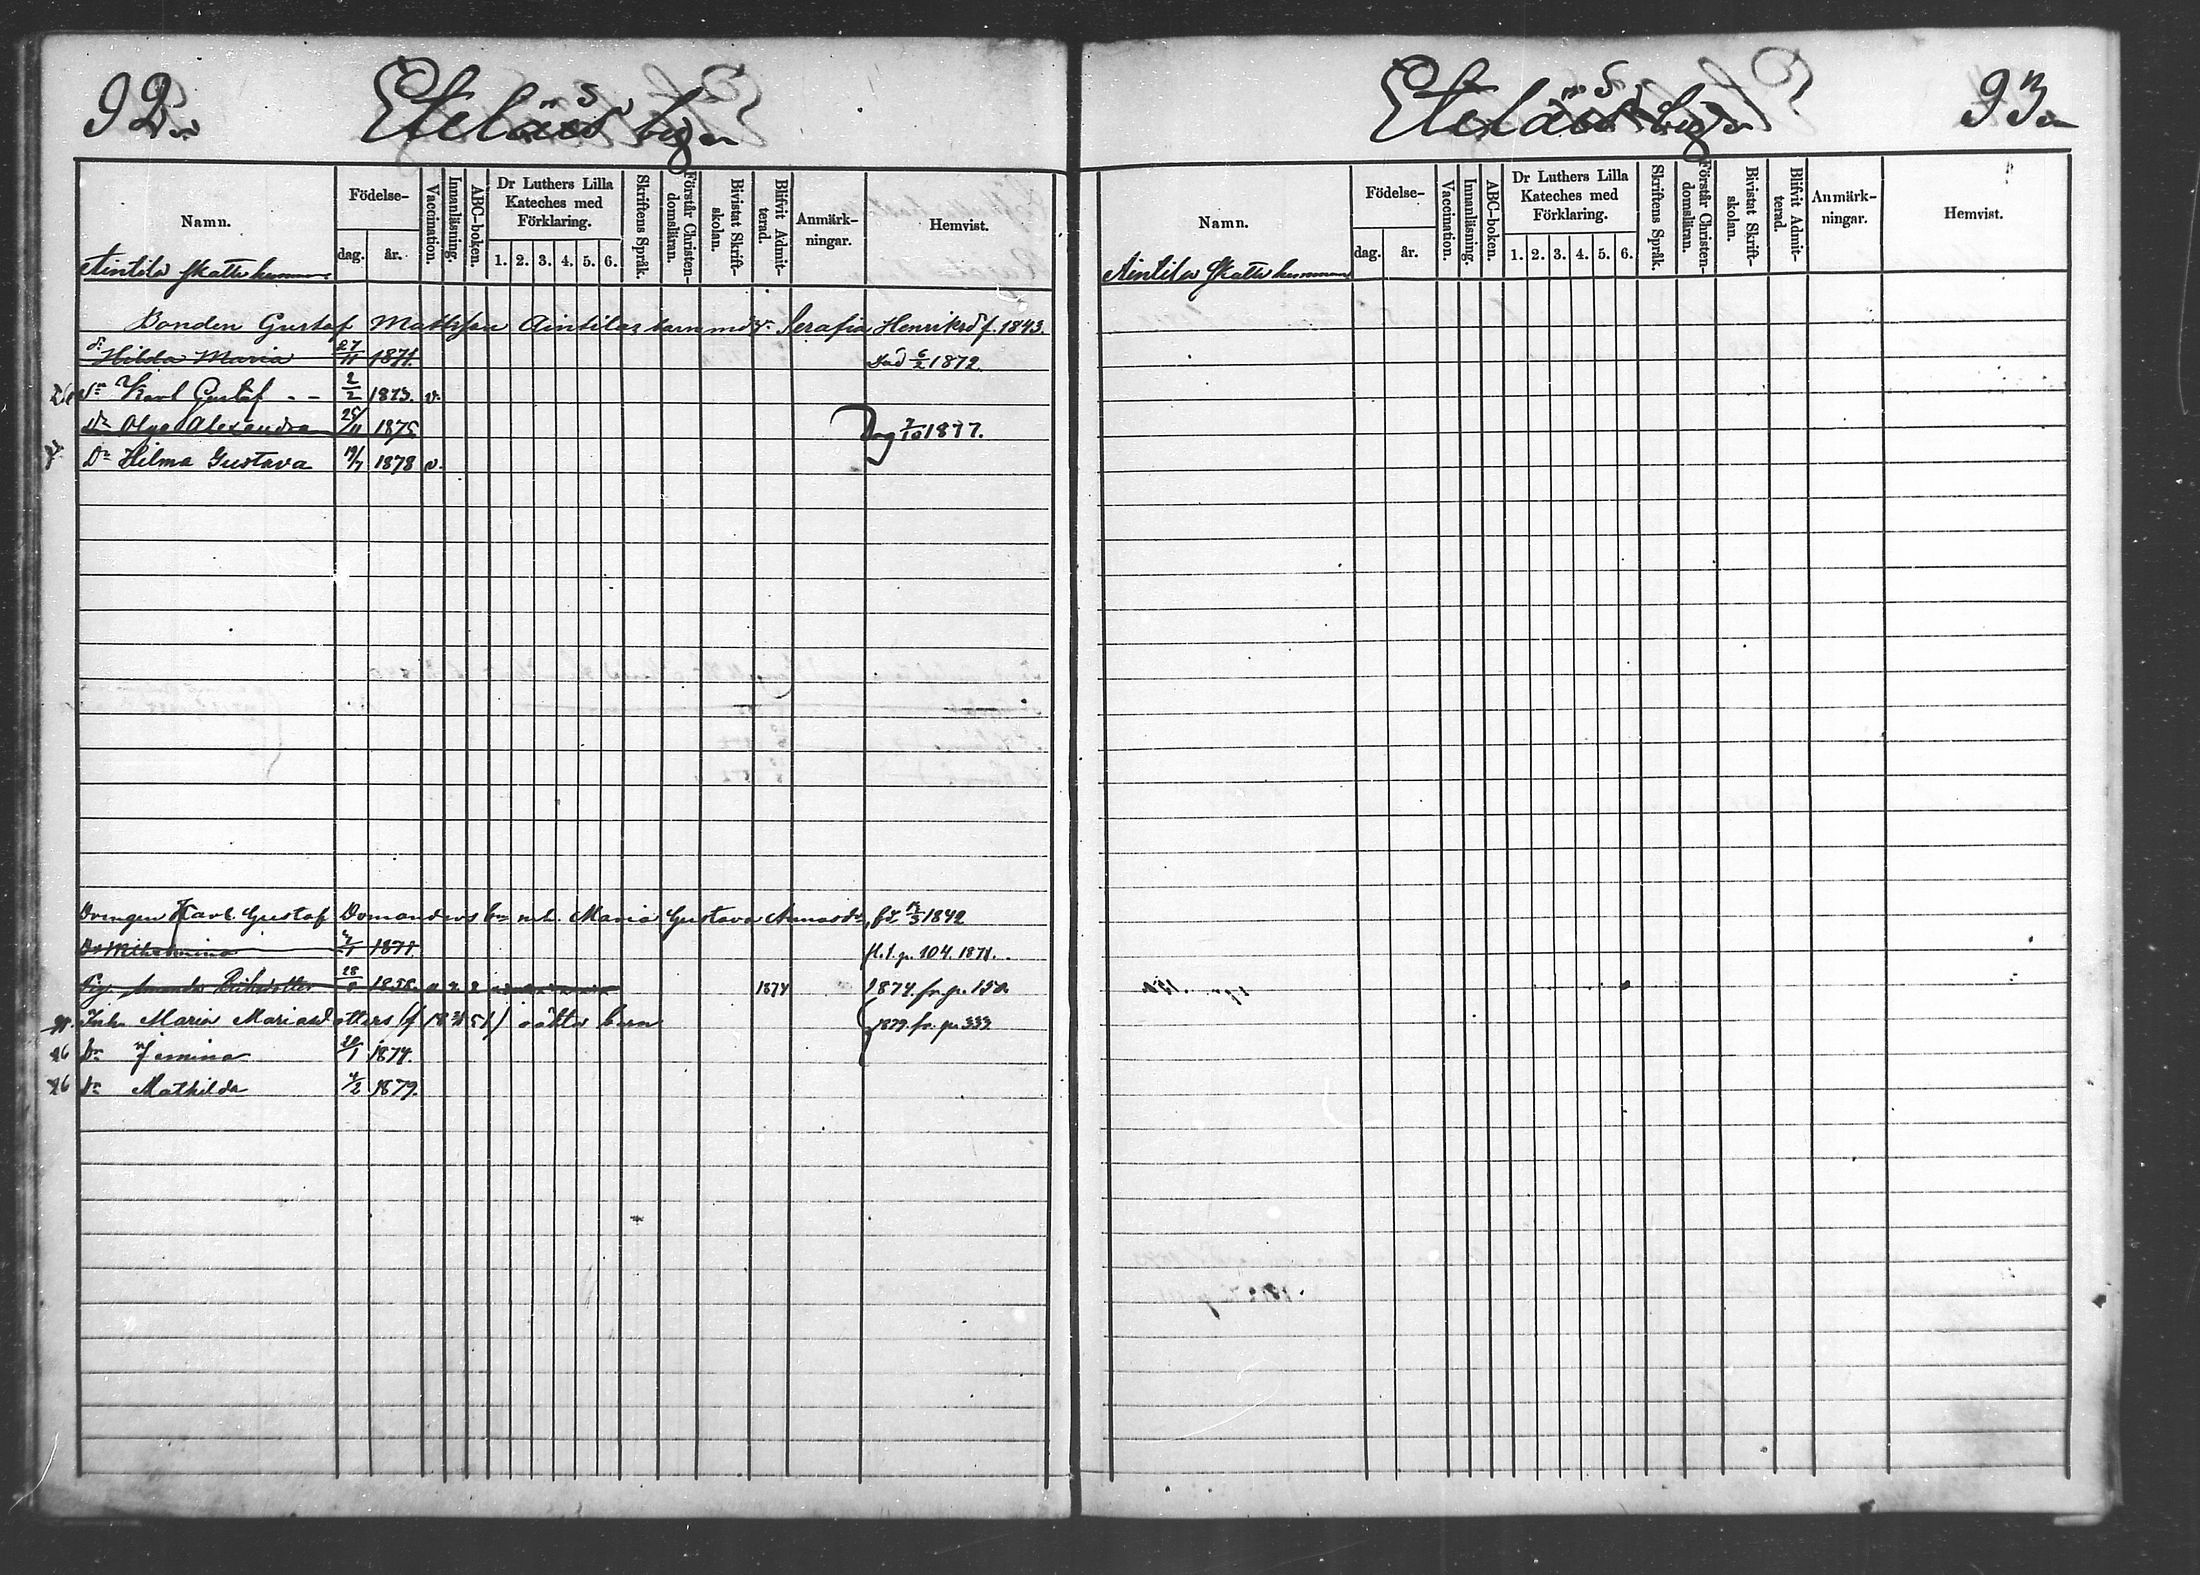 92
Eteläs by
Namn.
Födelse-
dag.
år.
Vaccination.
Innanläsning.
ABC-boken.
Dr Luthers Lilla
Kateches med
Förklaring.
1. 2. 3. 4. 5. 6.
Skriftens Språk.
Förstår Christen-
domsläran.
Bivistat Skrift-
skolan.
Blifvit Admit-
terad.
Anmärk-
ningar.
Hemvist.
Aintila skatte hemman
Bonden Gustaf Mattsson Aintilas barn md Serafia Henriksd f. 1843.
Hilda Maria 27/11 1871. Död 6/2 1872.
Karl Gustaf - - 2/2 1873. v.
Olga Alexandra 25/11 1875 Dog 7/10 1877.
Dr Hilma Gustava 19/7 1878 v.
Drengen Karl Gustaf Domanders bn m.h. Maria Gustava 1842
Dr Wilhelmina 1871. fl. t. p. 104. 1871.
Pig. Amanda 28 1874 1874. fr. p.
Inh. Maria Mariasdotters oäkta barn 1879. fr. p. 333
26 Dr Jemina 20/1 1874.
26 Dr Mathilda 4/2 1879.
93
Eteläs by
Namn.
Födelse-
dag.
år.
Vaccination.
Innanläsning.
ABC-boken.
Dr Luthers Lilla
Kateches med
Förklaring.
1. 2. 3. 4. 5. 6.
Skriftens Språk.
Förstår Christen-
domsläran.
Bivistat Skrift-
skolan.
Blifvit Admit-
terad.
Anmärk-
ningar.
Hemvist.
Aintila Skatte hemman